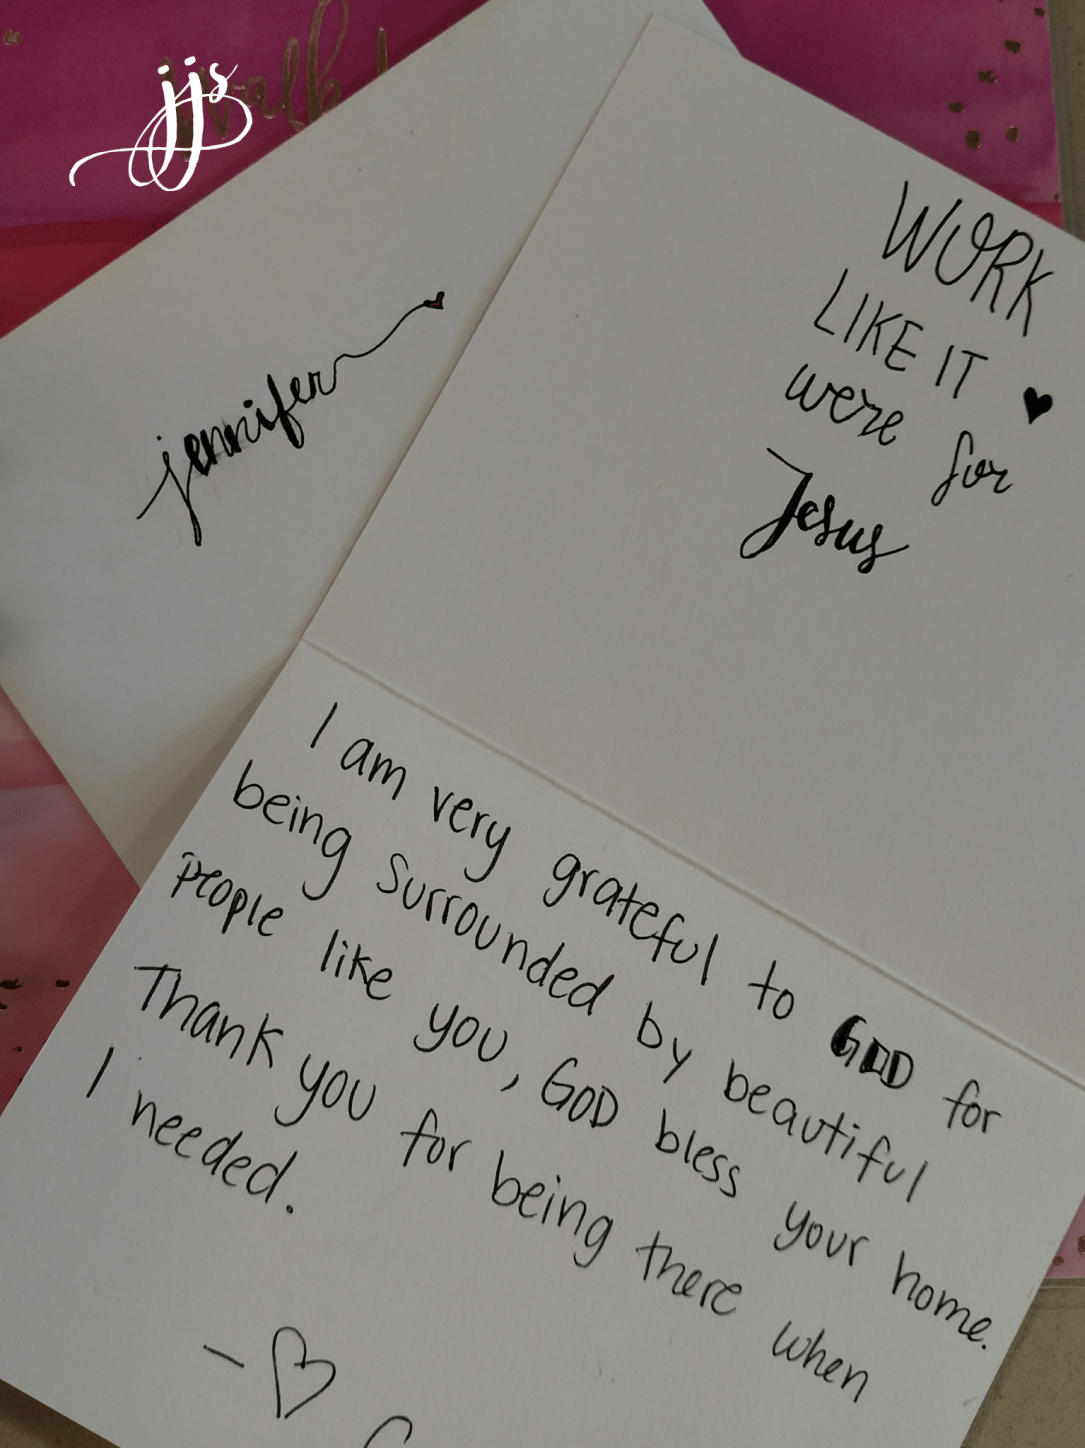 jjs
walk
jennifer
WORK
LIKE IT
were for
Jesus
I am very grateful to GOD for
being surrounded by beautiful
people like you, GOD bless your home.
Thank you for being there when
I needed.